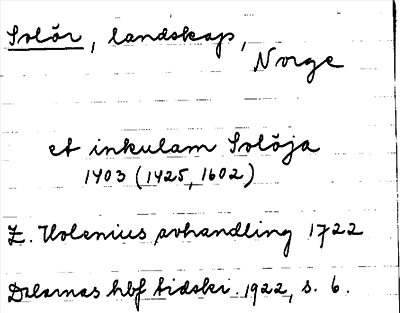 Solör, landskap,
Norge
et inkulam Solöja
1403 (1425, 1602)
Z. Holenius avhandling 1722
Dalarnas hbf tidskr. 1922, s. 6.